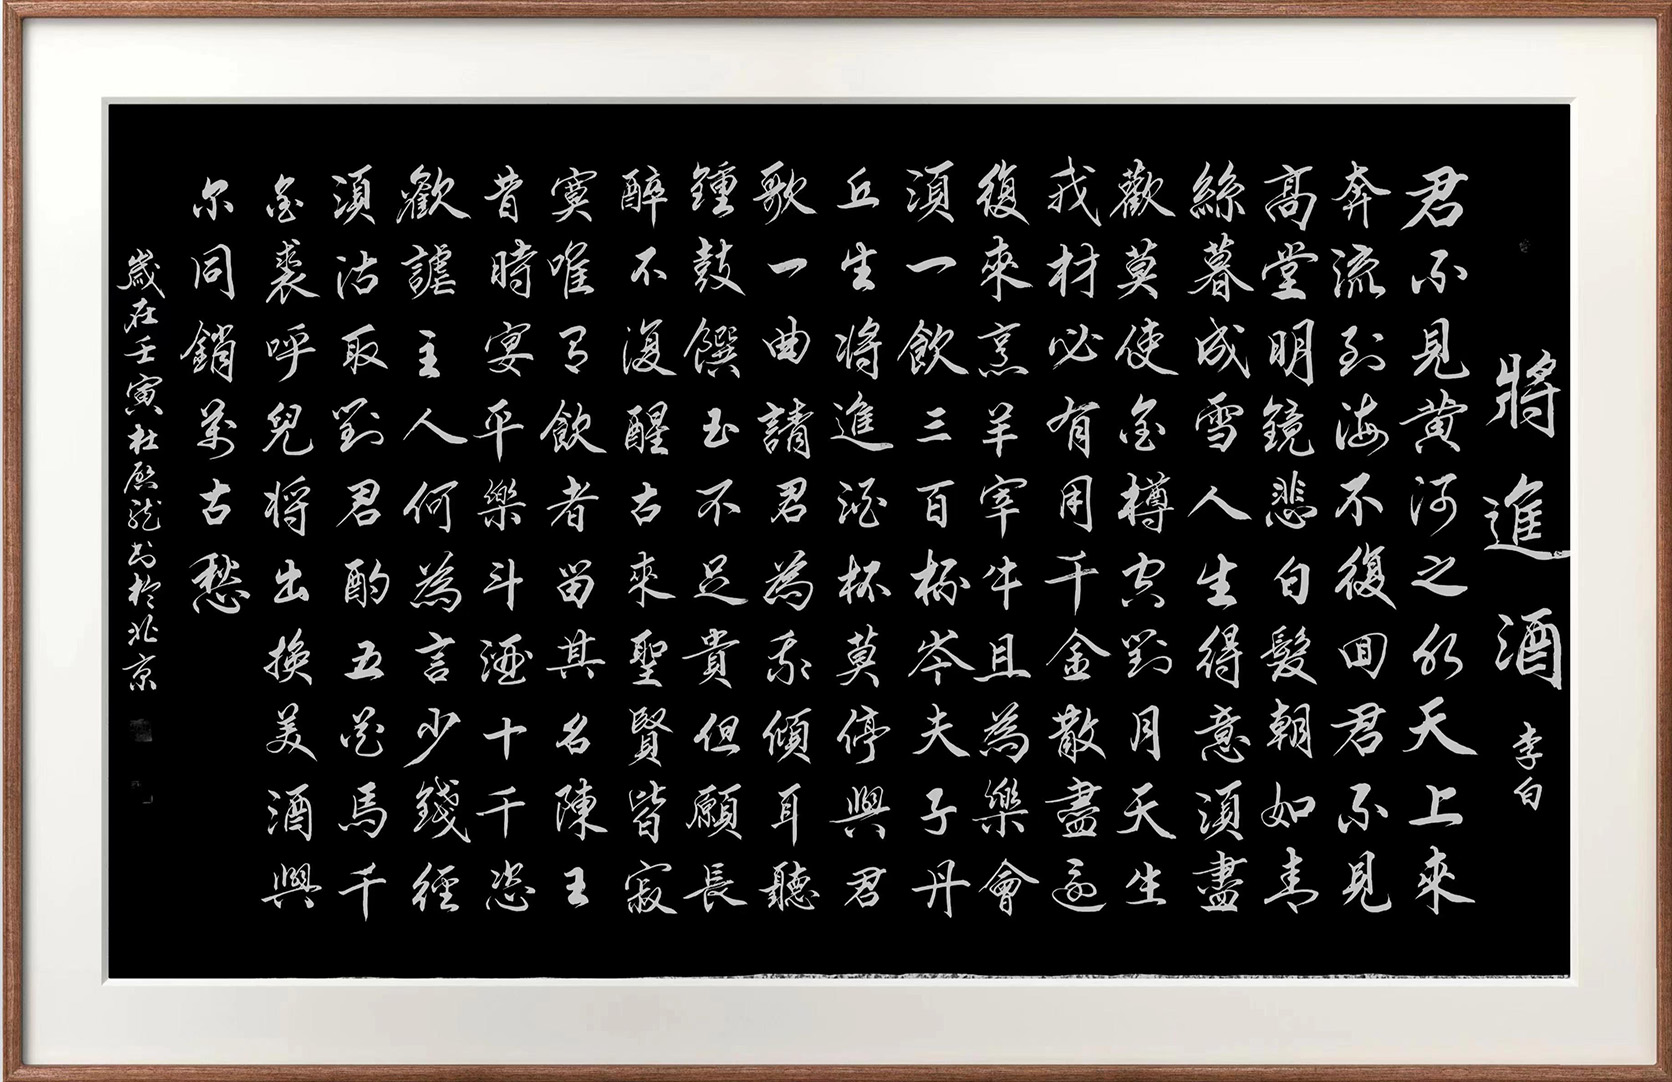 將進酒 李白
君不見黄河之水天上來
奔流到海不復回君不見
高堂明鏡悲白髮朝如青
絲暮成雪人生得意須盡
歡莫使金樽空對月天生
我材必有用千金散盡還
復來烹羊宰牛且為樂會
須一飲三百杯岑夫子丹
丘生將進酒杯莫停與君
歌一曲請君為我傾耳聽
鍾鼓饌玉不足貴但願長
醉不復醒古來聖賢皆寂
寞唯有飲者留其名陳王
昔時宴平樂斗酒十千恣
歡謔主人何為言少錢徑
須沽取對君酌五花馬千
金裘呼兒将出換美酒與
尔同銷萬古愁
歲在壬寅杜龍書於北京